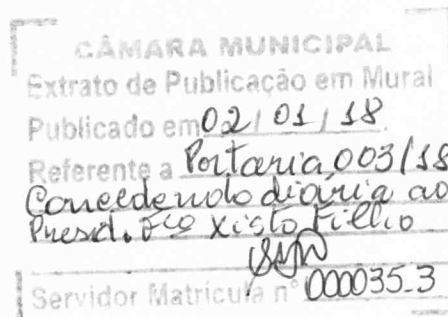 CÂMARA MUNICIPAL
Extrato de Publicação em Mural
Publicado em 02/01/18
Referente a Portaria 003/18
Concedendo diária ao
Presid. Fco Xisto Filho
Servidor Matricula nº 000035-3